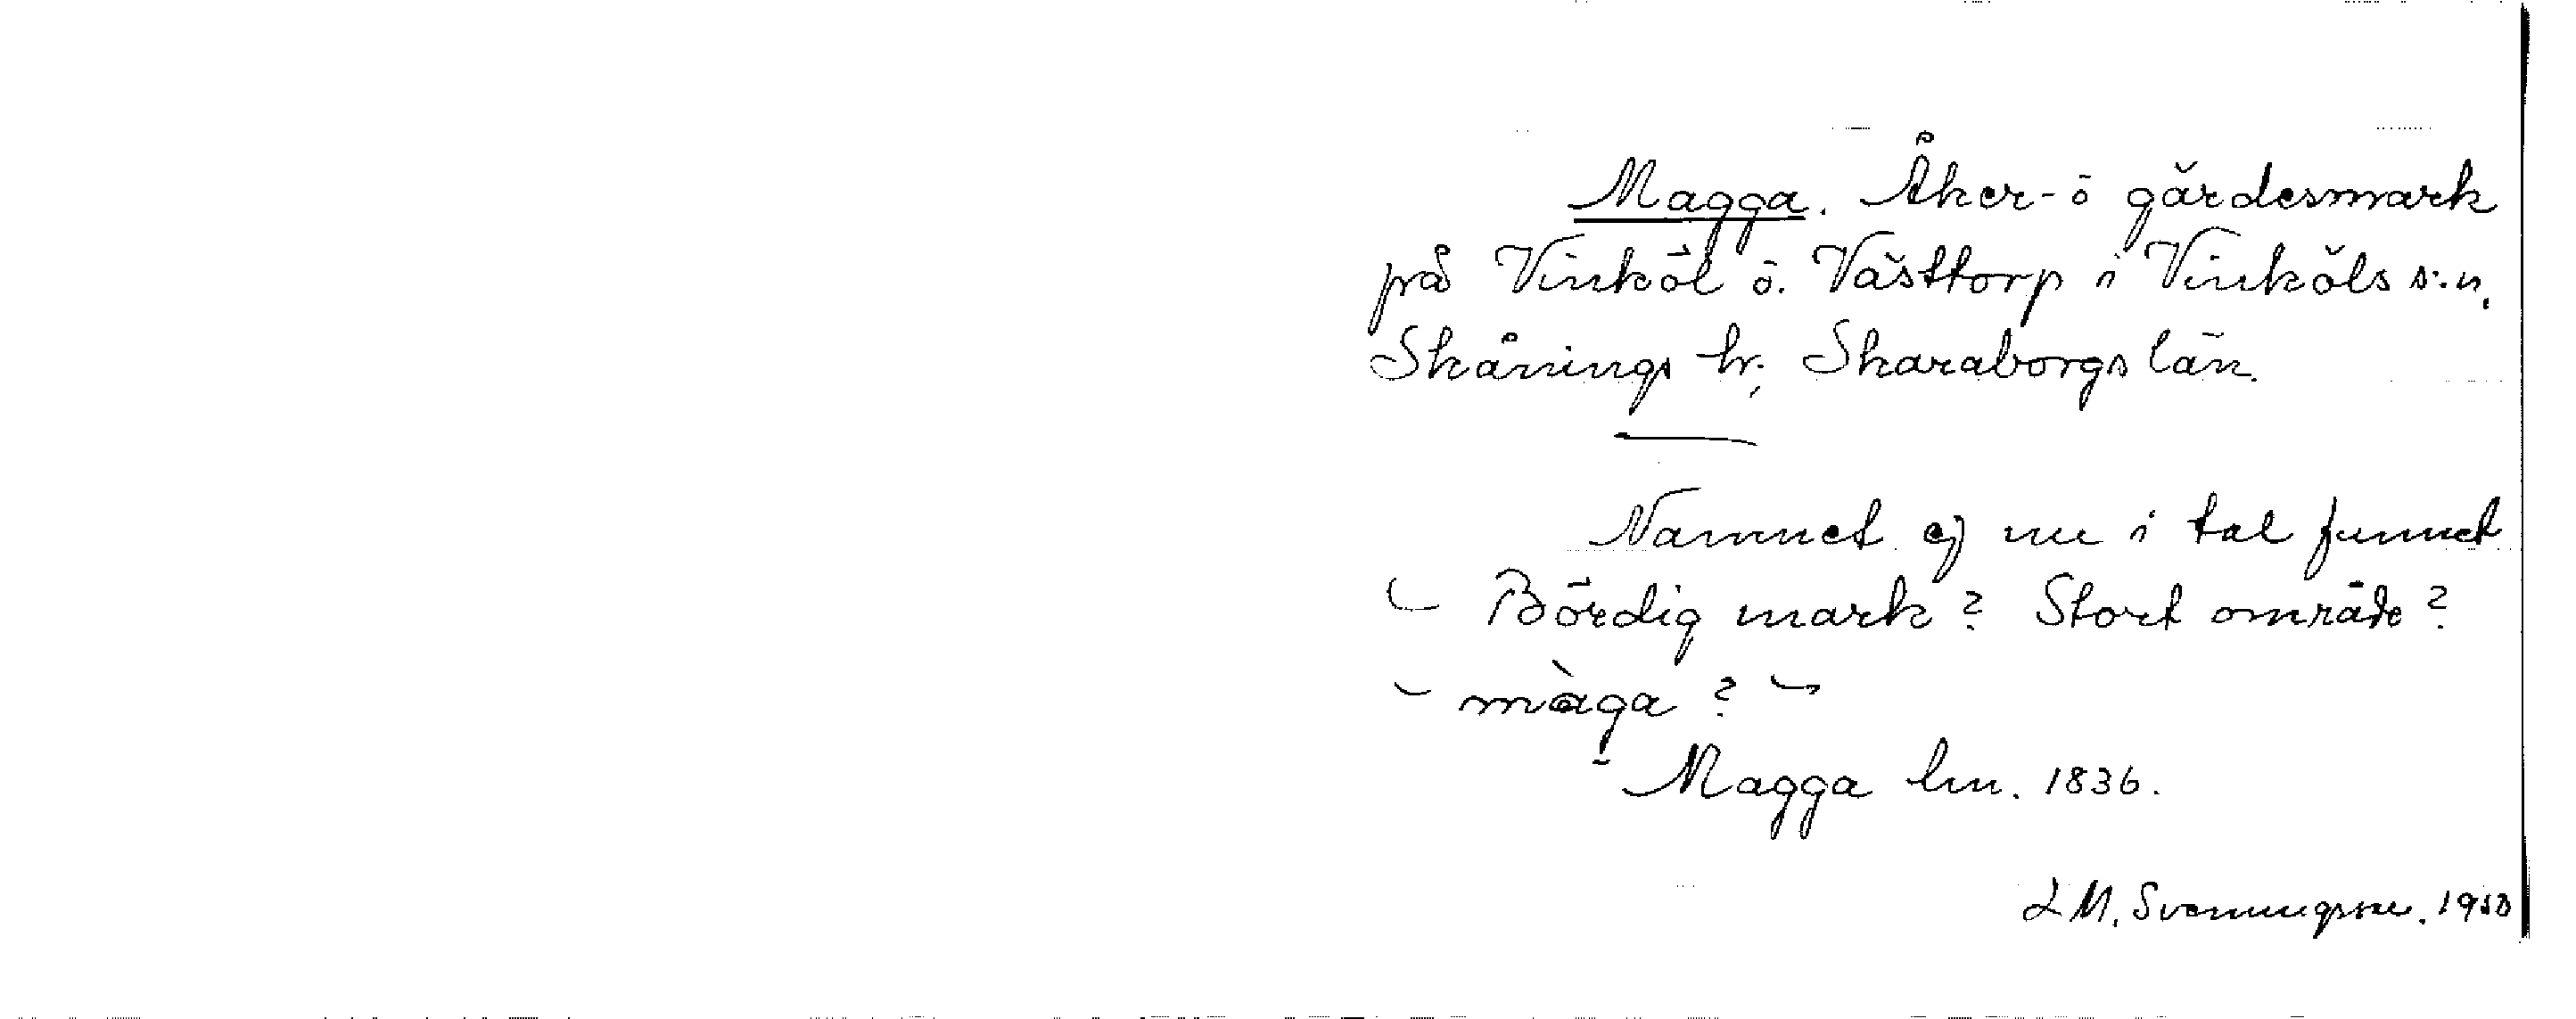 Magga. Åker- ö gärdesmark
på Vinköl ö. Västtorp i Vinköls s:n,
Skånings hr; Skaraborgs län.
Namnet ej nu i tal funnet
– Bördig mark? Stort område?
– màga? –
Magga lm. 1836.
L M. Svenungsson. 1950